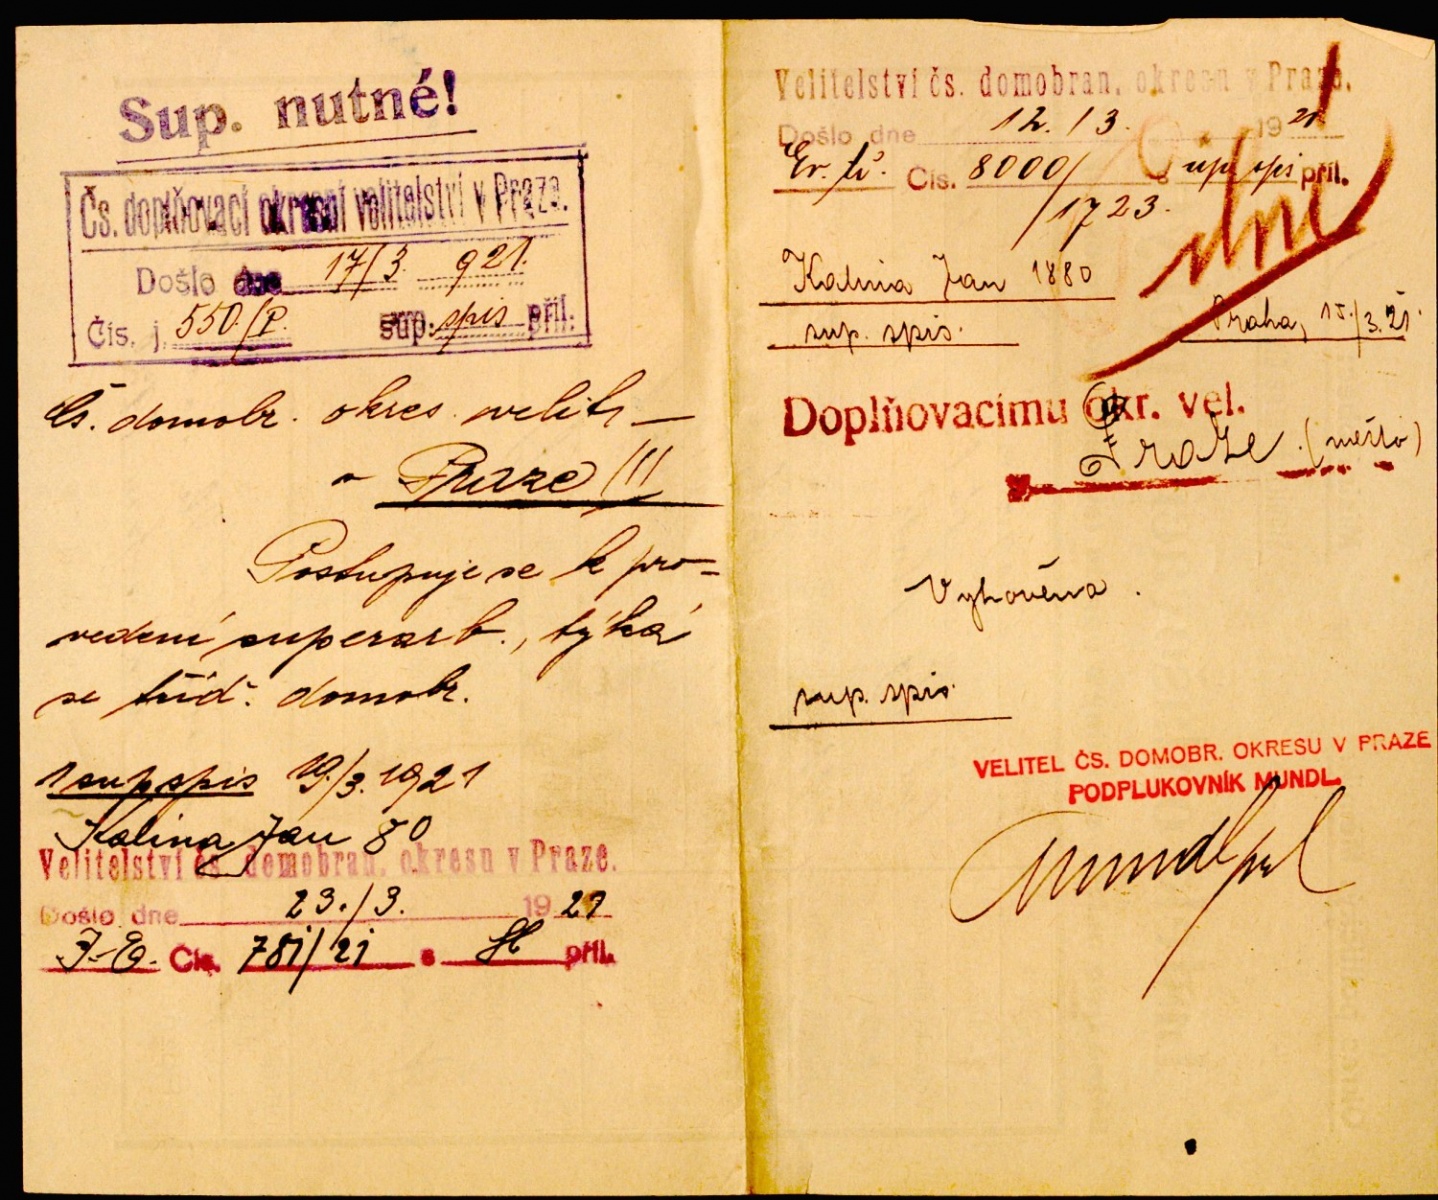 Sup. nutné!
Čs. doplňovací okresní velitelství v Praze.
Došlo dne 17/3. 921.
Čís. j. 550./P. sup. spis příl.
Čs. domobr. okres. velit.
v Praze III
Postupuje se k pro=
vedení superarb., týká
se tříd. domobr.
1 sup spis 19/3. 1921
Kalina Jan 80
Velitelství čs. domobran. okresu v Praze.
Došlo dne 23./3. 1921
Čís. 781/21 s příl.
Velitelství čs. domobran. okresu v Praze.
Došlo dne 12./3. 1921
Ev. Čís. 8000/ s sup. spis příl.
/1723.
Kalina Jan 1880
sup. spis. Praha, 15./3.21.
Doplňovacímu okr. vel.
Praze. (město)
Vyhověno.
sup. spis.
VELITEL ČS. DOMOBR. OKRESU V PRAZE
PODPLUKOVNÍK MUNDL.
Mundl ppl